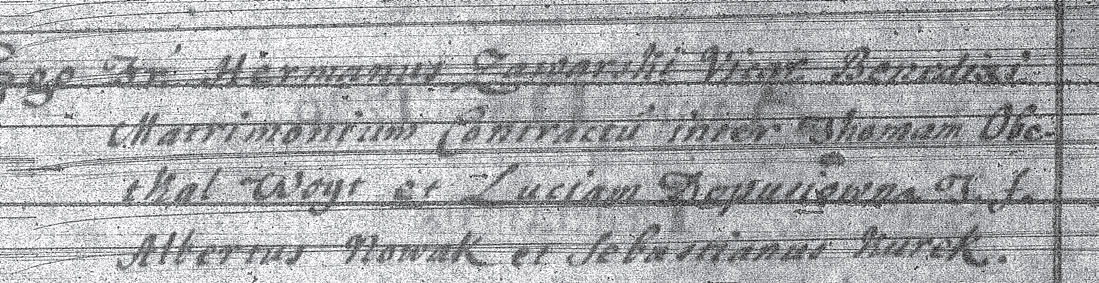 Ego Fr: Hermanus Zawarski Vicar Benedixi
Matrimonium Contractu inter Thomam Obc-
thal Woyt et Luciam T. f.
Albertus Nowak et Sebastianus Kurek.